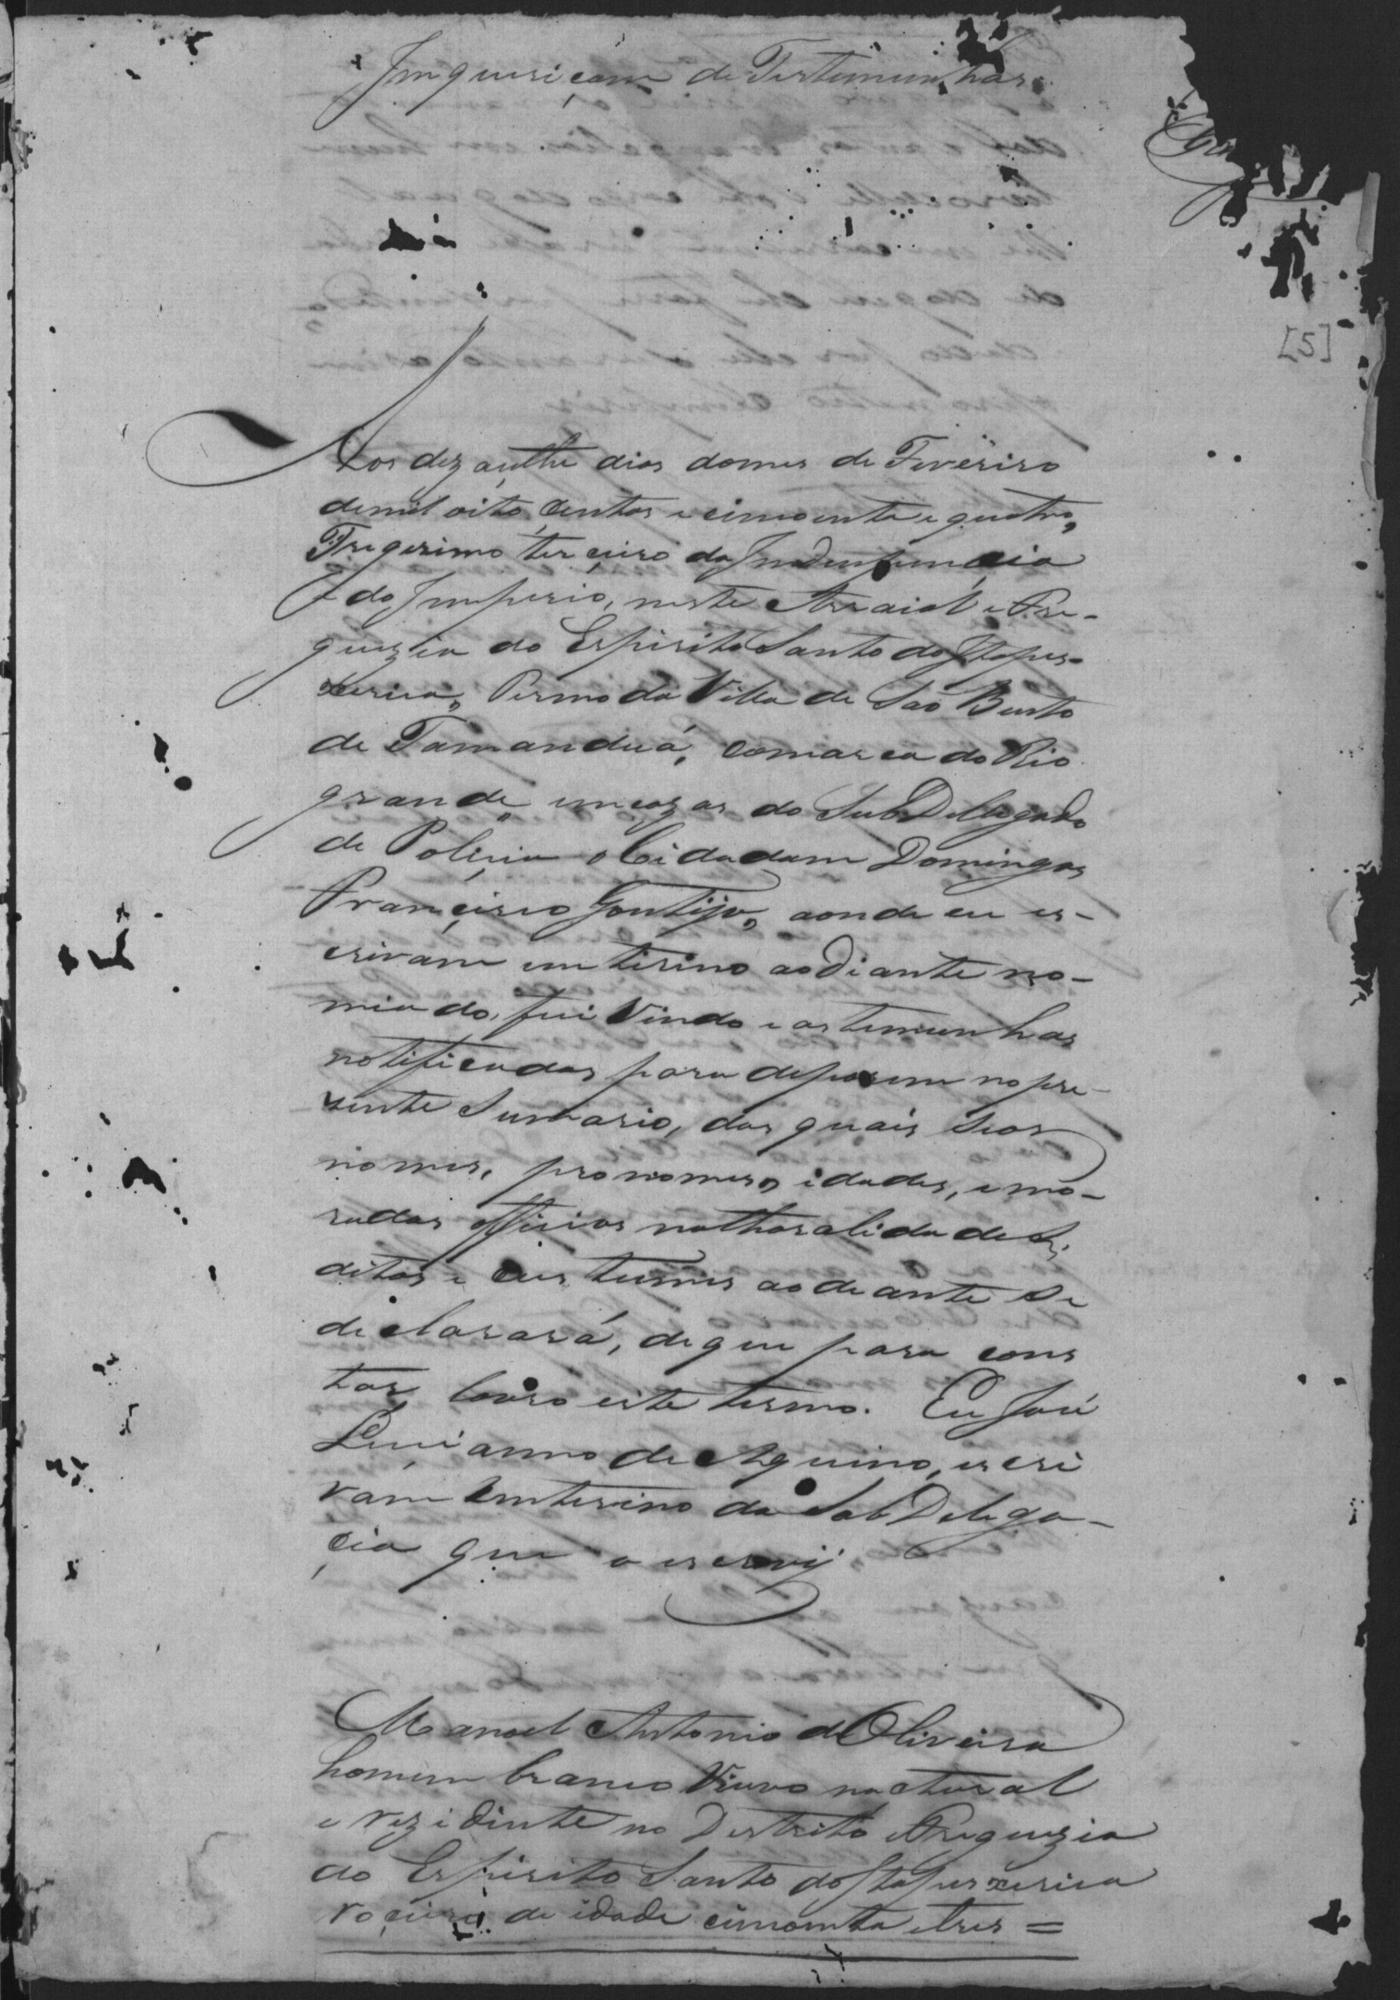 Inquiriçam de Testemunhas
[5]
Aos dezanthe dias domes de Fevèriro
demil oito centos e cimcoenta e quatro,
Tregesimo terceiro da Independencia
e do Imperio, neste Arraial e Fre-
guezia do Espirito Santo da Itapes-
xerica, Termo da Villa de Sao Bento
de Tamanduá, Comarca do Rio
grande em cazas do SubDellegado
de Policia o Cidadam Domingos
Francisco Gontijo, aonde eu es-
crivam emterino aodiante no-
miado, fui vindo e as temunhas
notificadas para deporem no pre-
zente Sumario, das quais seos
nomes, pronomes, idades, e mo-
radas officios nathoralidades
ditos e custumes aodeante se
declarará, de que para cons
tar lavro este termo. Eu José
Lucianno de Aquino, escri
vam emterino da SubDelega-
cia que o escrevij
Manoel Antonio de Oliveira
homem branco Viuvo nactural
e rezidente no Destrito e Freguezia
do Espirito Santo da Itapesxerica
roceiro de idade cimcoenta e tres =